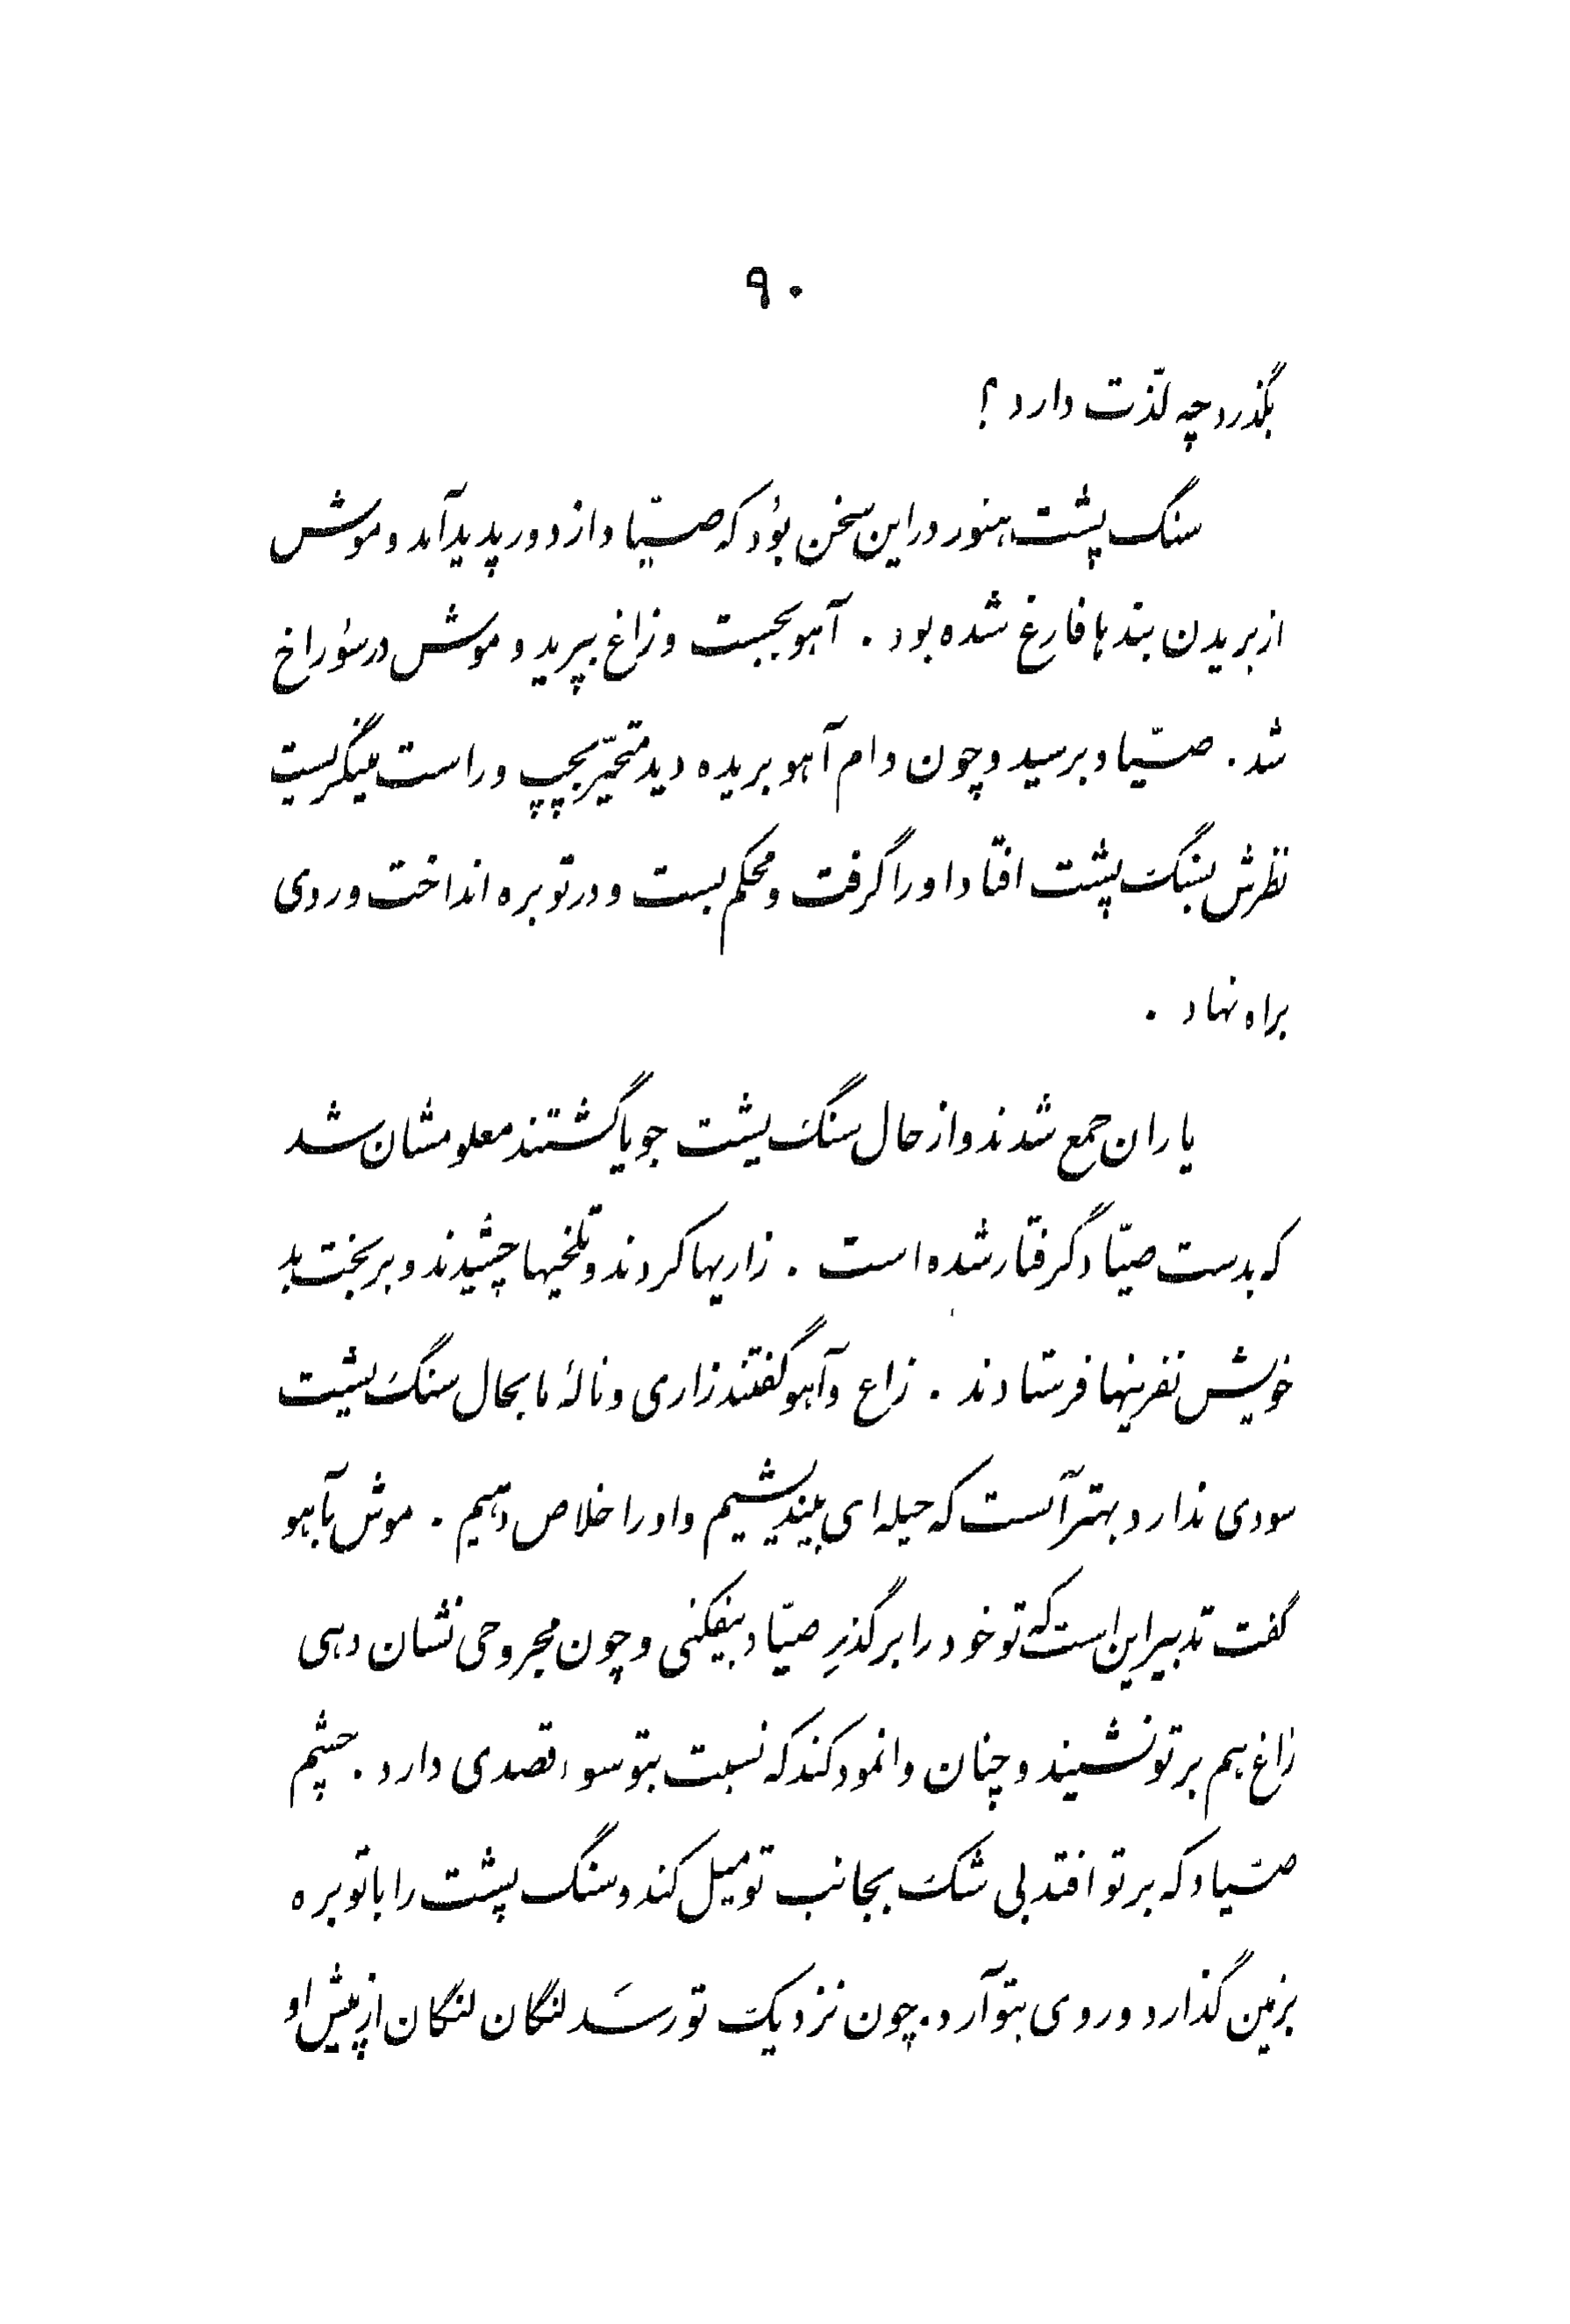 ۹۰
بگذرد چه لذّت دارد ؟
سنگ پشت هنوز در این سخن بوُد که صیّاد از دور پدید آمد و موش
از بریدن بندها فارغ شده بود . آهو بجست و زاغ بپرید و موش در سوُراخ
شد . صیّاد برسید و چون دام آهو بریده دید متحیّر بچپ و راست مینگریست
نظرش بسنگ پشت افتاد او را گرفت و محکم ببست و در توبره انداخت و روی
براه نهاد .
یاران جمع شدند و از حال سنگ پشت جویا گشتند معلومشان شد
که بدست صیّاد گرفتار شده است . زاریها کردند و تلخیها چشیدند و بر بخت بد
خویش نفرینها فرستادند . زاغ و آهو گفتند زاری و نالهٔ ما بحال سنگ پشت
سودی ندارد بهتر آنست که حیله ای بیندیشیم و او را خلاص دهیم . موش بآهو
گفت تدبیر این است که تو خود را بر گذرِ صیّاد بیفکنی و چون مجروحی نشان دهی
زاغ هم بر تو نشیند و چنان وانمود کند که نسبت بتو سوء قصدی دارد . چشم
صیّاد که بر تو افتد بی شک بجانب تو میل کند و سنگ پشت را با توبره
بزمین گذارد و روی بتو آرد . چون نزدیک تو رسَد لنگان لنگان از پیش او